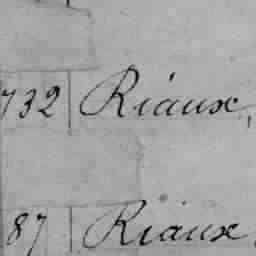 732 Riaux,
87 Riaux.